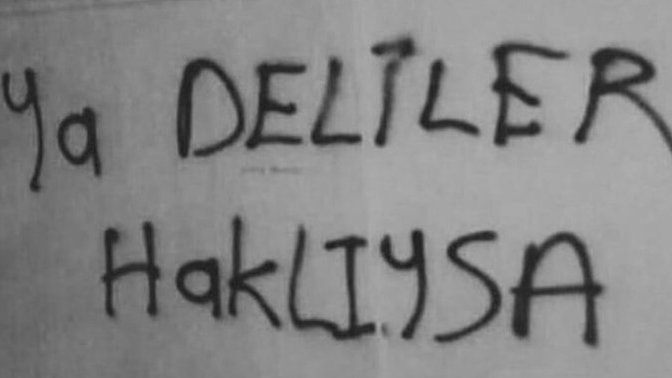 Ya DELİLER
HakLIYSA